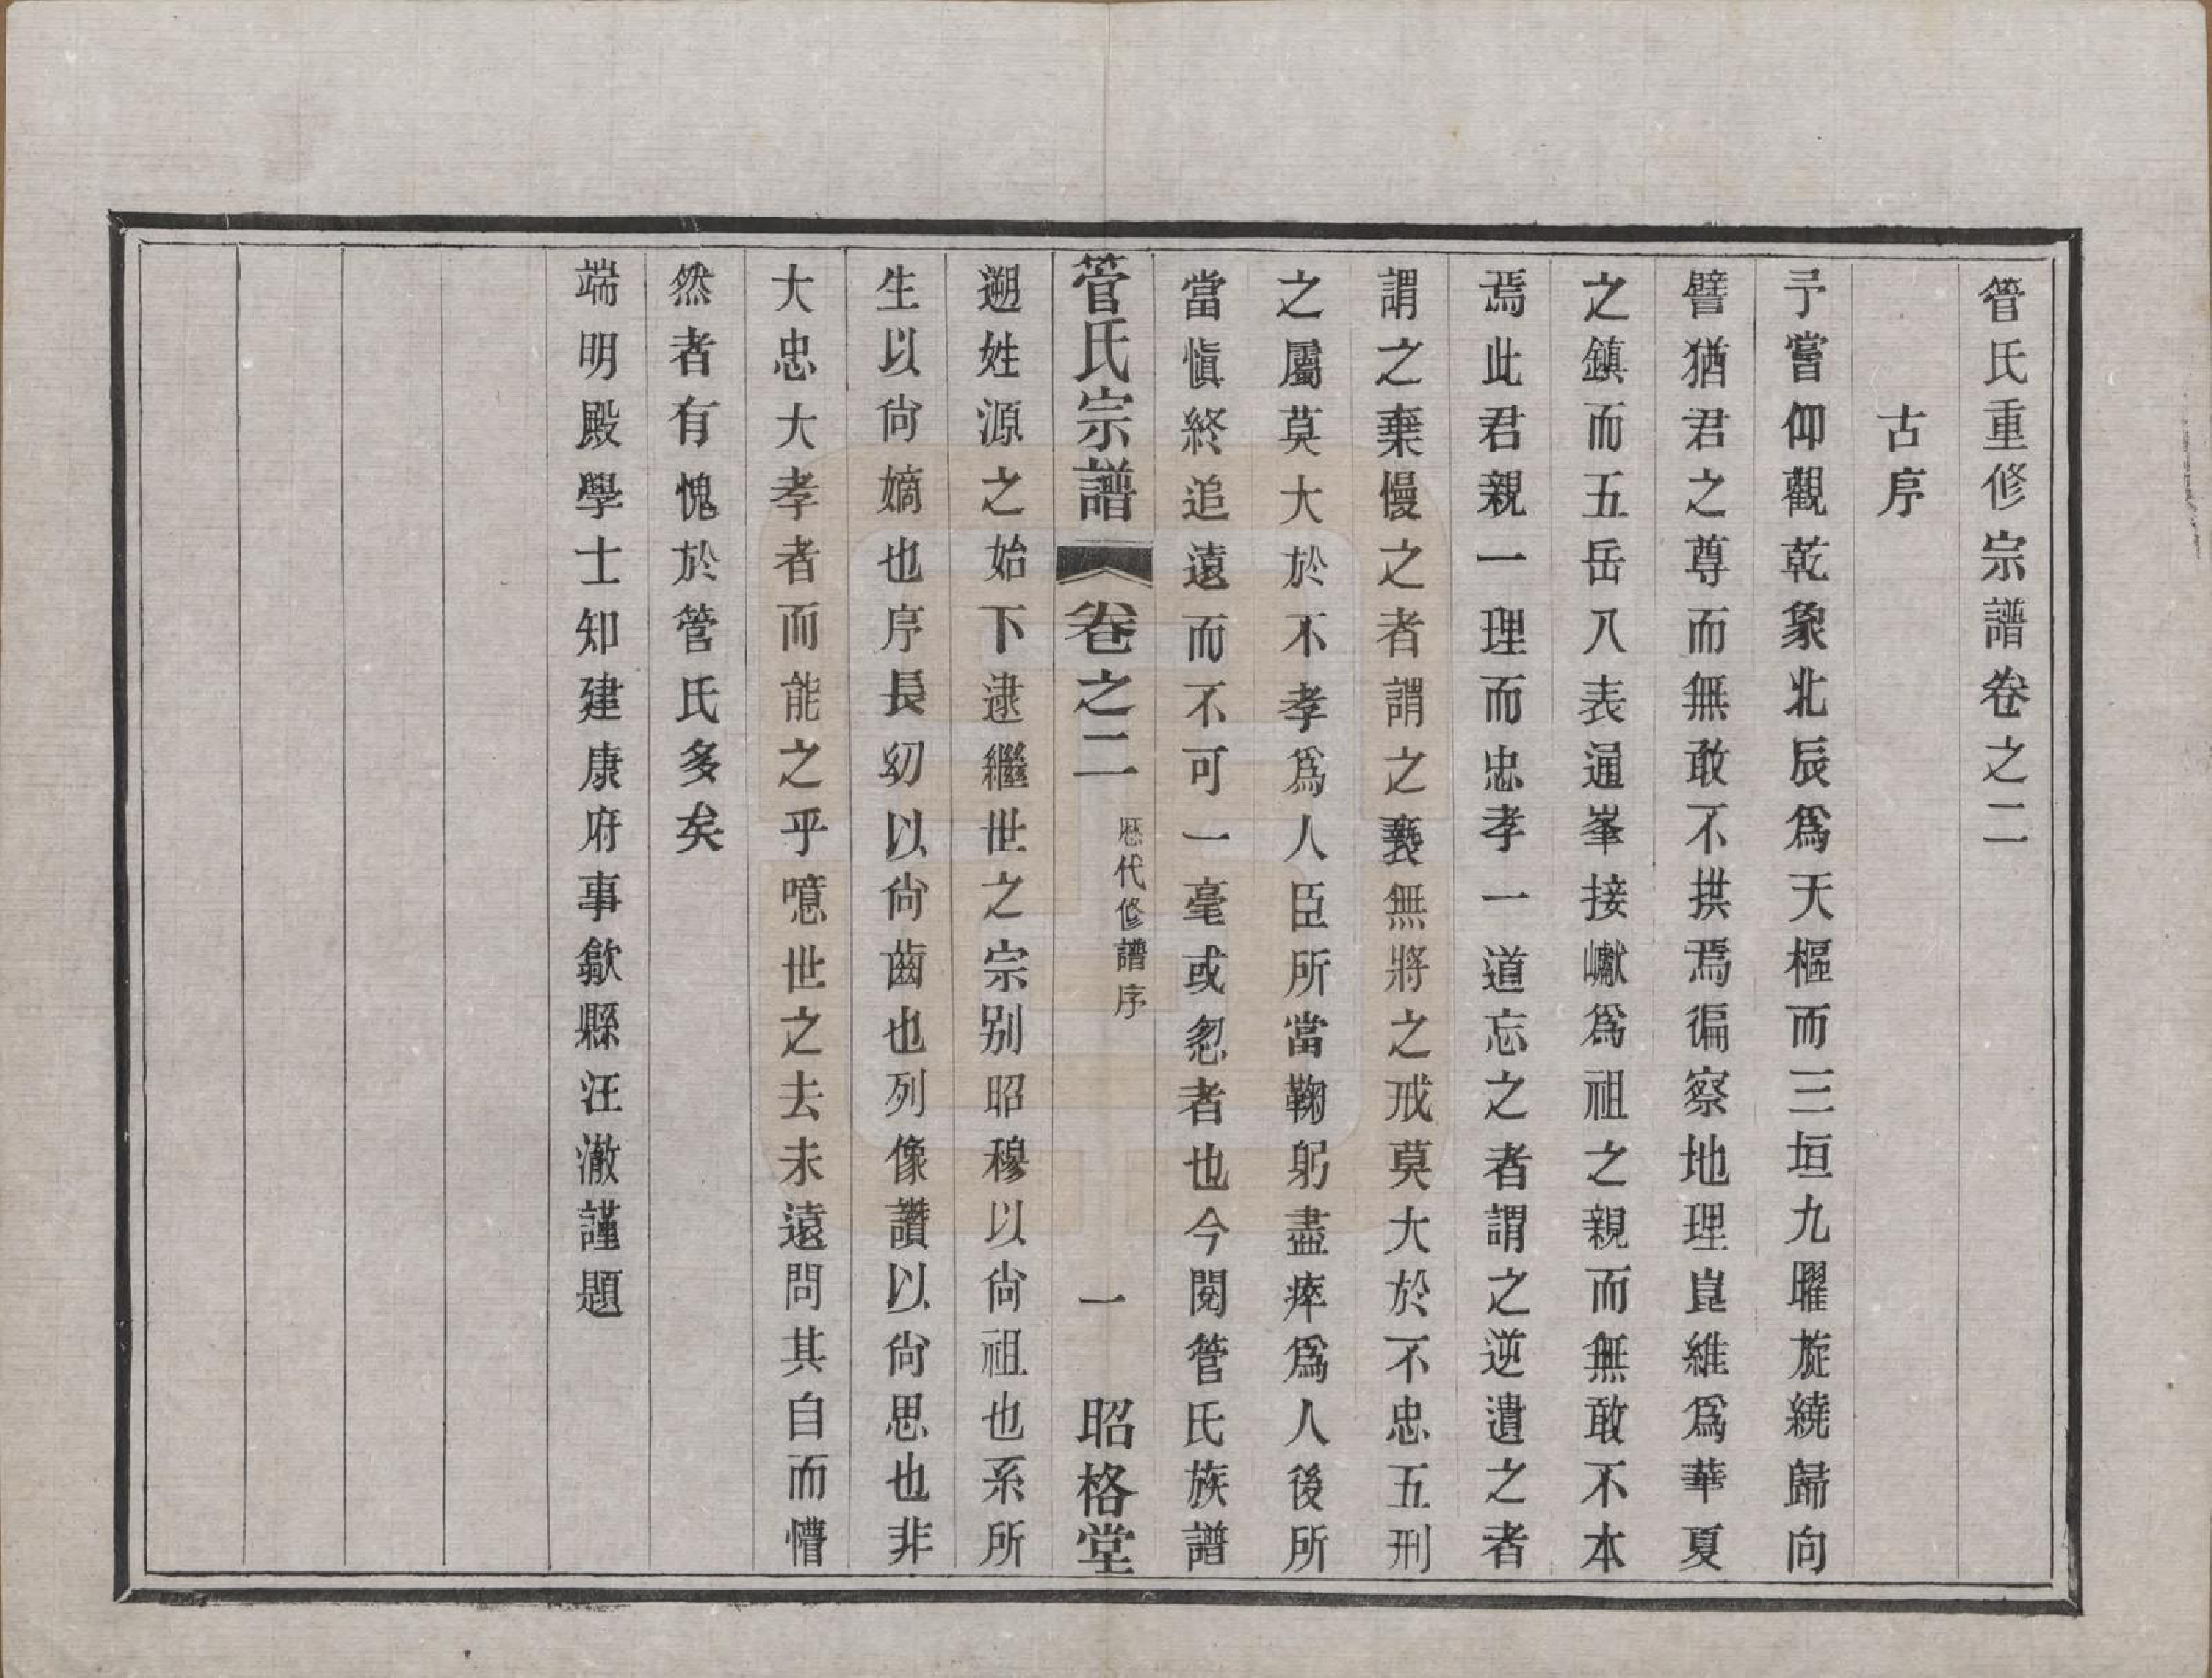 管氏重修宗譜卷之二
古序
予嘗仰觀乾象北辰爲天樞而三垣九曜旋繞歸向
譬猶君之尊而無敢不拱焉徧察地理崑維爲華夏
之鎮而五岳八表通峯接巘爲祖之親而無敢不本
焉此君親一理而忠孝一道忘之者謂之逆遺之者
謂之棄慢之者謂之褻無將之戒莫大於不忠五刑
之屬莫大於不孝爲人臣所當鞠躬盡瘁爲人後所
當愼終追遠而不可一毫或忽者也今閱管氏族譜
管氏宗譜 卷之二 歷代修譜序 一 昭格堂
遡姓源之始下逮繼世之宗別昭穆以尙祖也系所
生以尙嫡也序長幼以尙齒也列像讚以尙思也非
大忠大孝者而能之乎噫世之去未遠問其自而懵
然者有愧於管氏多矣
端明殿學士知建康府事歙縣汪澈謹題